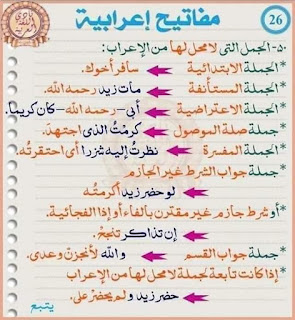 مفاتيح إعرابية
26
٥٠-الجمل التى لا محل لها من الإعراب:
*الجملة الابتدائية سافر أخوك.
*الجملة المستأنفة مات زيد رحمه الله.
*الجملة الاعتراضية أبى-رحمه الله-كان كريما.
*جملة صلة الموصول كرمْتُ الذى اجتهدَ.
*الجملة المفسرة نظرتُ إليه شزرا أى احتقرتُه.
*جملة جواب الشرط غير الجازم
لو حضر زيد أكرمتُه
*أو شرط جازم غير مقترن بالفاء أو إذا الفجائية.
إن تذاكر تنجحْ.
*جملة جواب القسم والله لأنجزنّ وعدى.
*إذا كانت تابعة لجملة لا محل لها من الإعراب
حضر زيد ولم يحضرْ على.
يتبع